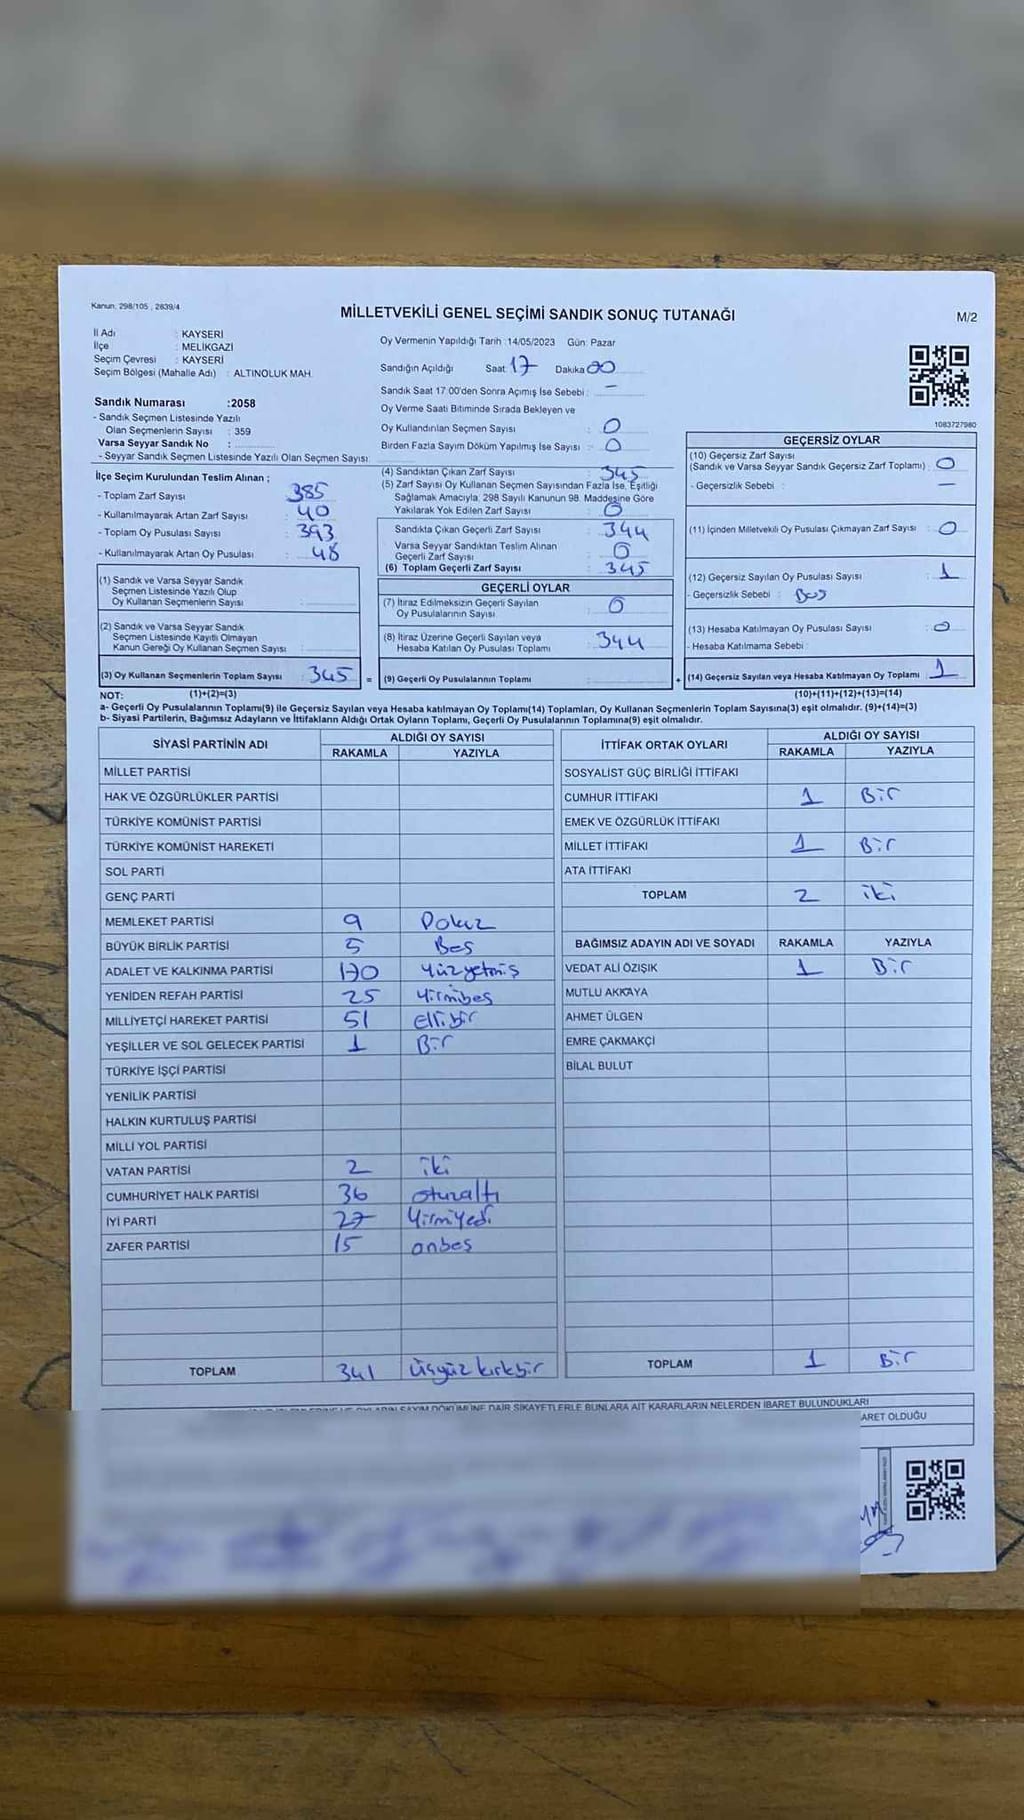 Kanun: 298/105 , 2839/4
MİLLETVEKİLİ GENEL SEÇİMİ SANDIK SONUÇ TUTANAĞI
M/2
İl Adı : KAYSERİ
İlçe : MELİKGAZİ
Seçim Çevresi : KAYSERİ
Seçim Bölgesi (Mahalle Adı) : ALTINOLUK MAH.
Sandık Numarası :2058
- Sandık Seçmen Listesinde Yazılı
Olan Seçmenlerin Sayısı : 359
Varsa Seyyar Sandık No :
- Seyyar Sandık Seçmen Listesinde Yazılı Olan Seçmen Sayısı:
İlçe Seçim Kurulundan Teslim Alınan ;
- Toplam Zarf Sayısı : 385
- Kullanılmayarak Artan Zarf Sayısı : 40
- Toplam Oy Pusulası Sayısı : 393
- Kullanılmayarak Artan Oy Pusulası : 48
(1) Sandık ve Varsa Seyyar Sandık
Seçmen Listesinde Yazılı Olup
Oy Kullanan Seçmenlerin Sayısı :
(2) Sandık ve Varsa Seyyar Sandık
Seçmen Listesinde Kayıtlı Olmayan
Kanun Gereği Oy Kullanan Seçmen Sayısı :
(3) Oy Kullanan Seçmenlerin Toplam Sayısı : 345
Oy Vermenin Yapıldığı Tarih :14/05/2023 Gün: Pazar
Sandığın Açıldığı Saat: 17 Dakika: 00
Sandık Saat 17:00'den Sonra Açımış İse Sebebi : —
Oy Verme Saati Bitiminde Sırada Bekleyen ve
Oy Kullandırılan Seçmen Sayısı : 0
Birden Fazla Sayım Döküm Yapılmış İse Sayısı : 0
(4) Sandıktan Çıkan Zarf Sayısı : 345
(5) Zarf Sayısı Oy Kullanan Seçmen Sayısından Fazla İse, Eşitliği
Sağlamak Amacıyla, 298 Sayılı Kanunun 98. Maddesine Göre
Yakılarak Yok Edilen Zarf Sayısı : 0
Sandıkta Çıkan Geçerli Zarf Sayısı : 344
Varsa Seyyar Sandıktan Teslim Alınan
Geçerli Zarf Sayısı : 0
(6) Toplam Geçerli Zarf Sayısı : 345
GEÇERLİ OYLAR
(7) İtiraz Edilmeksizin Geçerli Sayılan
Oy Pusulalarının Sayısı : 0
(8) İtiraz Üzerine Geçerli Sayılan veya
Hesaba Katılan Oy Pusulası Toplamı : 344
= (9) Geçerli Oy Pusulalarının Toplamı :
1083727980
GEÇERSİZ OYLAR
(10) Geçersiz Zarf Sayısı
(Sandık ve Varsa Seyyar Sandık Geçersiz Zarf Toplamı) : 0
- Geçersizlik Sebebi : —
(11) İçinden Milletvekili Oy Pusulası Çıkmayan Zarf Sayısı : 0
(12) Geçersiz Sayılan Oy Pusulası Sayısı : 1
- Geçersizlik Sebebi : Boş
(13) Hesaba Katılmayan Oy Pusulası Sayısı : 0
- Hesaba Katılmama Sebebi :
+ (14) Geçersiz Sayılan veya Hesaba Katılmayan Oy Toplamı : 1
NOT: (1)+(2)=(3) (10)+(11)+(12)+(13)=(14)
a- Geçerli Oy Pusulalarının Toplamı(9) ile Geçersiz Sayılan veya Hesaba katılmayan Oy Toplamı(14) Toplamları, Oy Kullanan Seçmenlerin Toplam Sayısına(3) eşit olmalıdır. (9)+(14)=(3)
b- Siyasi Partilerin, Bağımsız Adayların ve İttifakların Aldığı Ortak Oyların Toplamı, Geçerli Oy Pusulalarının Toplamına(9) eşit olmalıdır.
SİYASİ PARTİNİN ADI ALDIĞI OY SAYISI
RAKAMLA YAZIYLA
MİLLET PARTİSİ
HAK VE ÖZGÜRLÜKLER PARTİSİ
TÜRKİYE KOMÜNİST PARTİSİ
TÜRKİYE KOMÜNİST HAREKETİ
SOL PARTİ
GENÇ PARTİ
MEMLEKET PARTİSİ 9 Dokuz
BÜYÜK BİRLİK PARTİSİ 5 Beş
ADALET VE KALKINMA PARTİSİ 170 Yüzyetmiş
YENİDEN REFAH PARTİSİ 25 Yirmibeş
MİLLİYETÇİ HAREKET PARTİSİ 51 ellibir
YEŞİLLER VE SOL GELECEK PARTİSİ 1 Bir
TÜRKİYE İŞÇİ PARTİSİ
YENİLİK PARTİSİ
HALKIN KURTULUŞ PARTİSİ
MİLLİ YOL PARTİSİ
VATAN PARTİSİ 2 iki
CUMHURİYET HALK PARTİSİ 36 otuzaltı
İYİ PARTİ 27 Yirmiyedi
ZAFER PARTİSİ 15 onbeş
TOPLAM 341 üçyüz kırkbir
İTTİFAK ORTAK OYLARI ALDIĞI OY SAYISI
RAKAMLA YAZIYLA
SOSYALİST GÜÇ BİRLİĞİ İTTİFAKI
CUMHUR İTTİFAKI 1 Bir
EMEK VE ÖZGÜRLÜK İTTİFAKI
MİLLET İTTİFAKI 1 Bir
ATA İTTİFAKI
TOPLAM 2 iki
BAĞIMSIZ ADAYIN ADI VE SOYADI RAKAMLA YAZIYLA
VEDAT ALİ ÖZIŞIK 1 Bir
MUTLU AKKAYA
AHMET ÜLGEN
EMRE ÇAKMAKÇI
BİLAL BULUT
TOPLAM 1 Bir
SAYIM DÖKÜMÜNE DAİR ŞİKAYETLERLE BUNLARA AİT KARARLARIN NELERDEN İBARET BULUNDUKLARI
ARET OLDUĞU